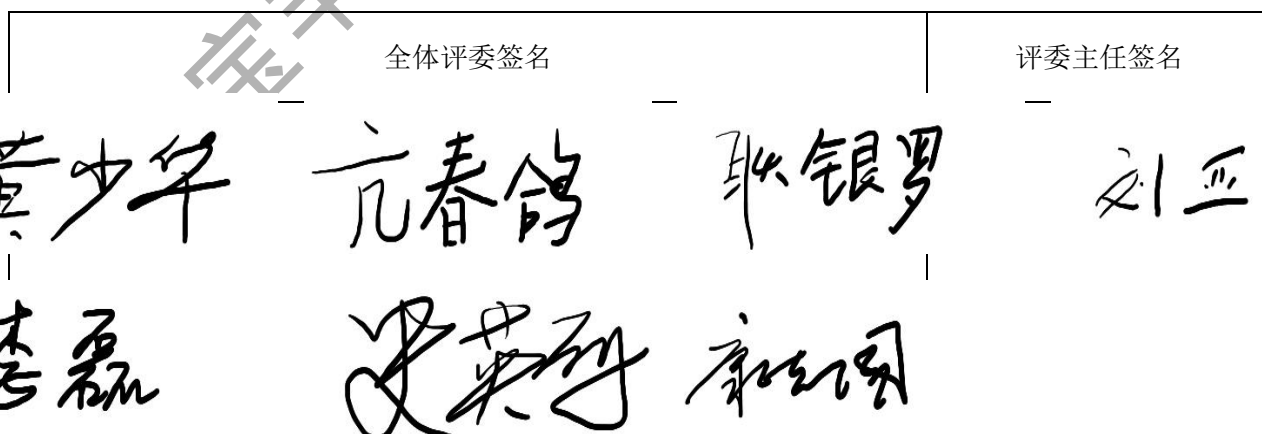 全体评委签名 评委主任签名
黄少华 亢春鸽 耿银罗 刘亚
李磊 史英